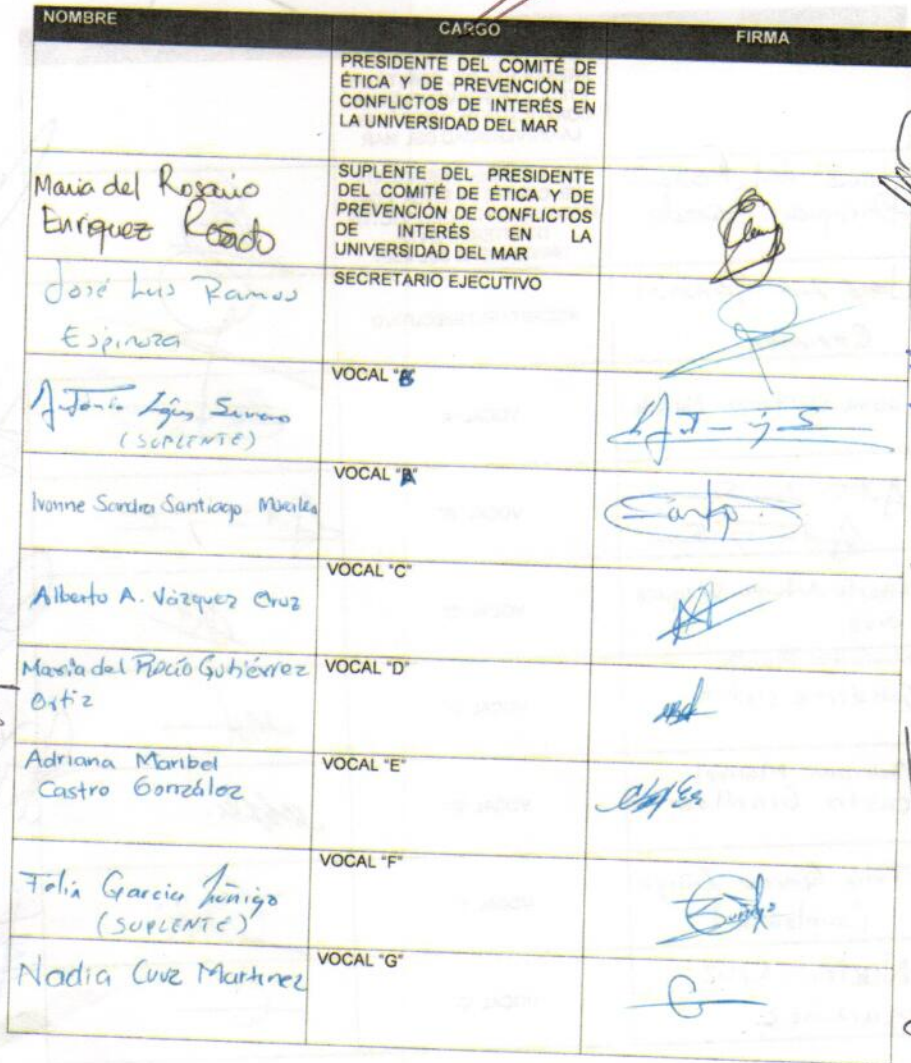 NOMBRE CARGO FIRMA
PRESIDENTE DEL COMITÉ DE
ÉTICA Y DE PREVENCIÓN DE
CONFLICTOS DE INTERÉS EN
LA UNIVERSIDAD DEL MAR
Maria del Rosario
Enriquez Rosado
SUPLENTE DEL PRESIDENTE
DEL COMITÉ DE ÉTICA Y DE
PREVENCIÓN DE CONFLICTOS
DE INTERÉS EN LA
UNIVERSIDAD DEL MAR
José Luis Ramos
Espinoza
SECRETARIO EJECUTIVO
Antonio López Serrano
(SUPLENTE)
VOCAL "B"
Ivonne Sandra Santiago
VOCAL "A"
Alberto A. Vázquez Cruz
VOCAL "C"
María del Rocío Gutiérrez
Ortiz
VOCAL "D"
Adriana Maribel
Castro González
VOCAL "E"
Felix Garcia Zúñiga
(SUPLENTE)
VOCAL "F"
Nadia Cruz Martinez
VOCAL "G"